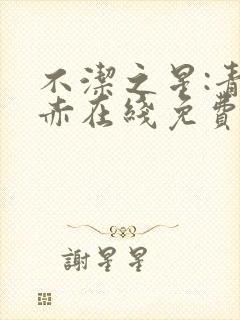 不潔之星:青
赤在綫免費
謝星星